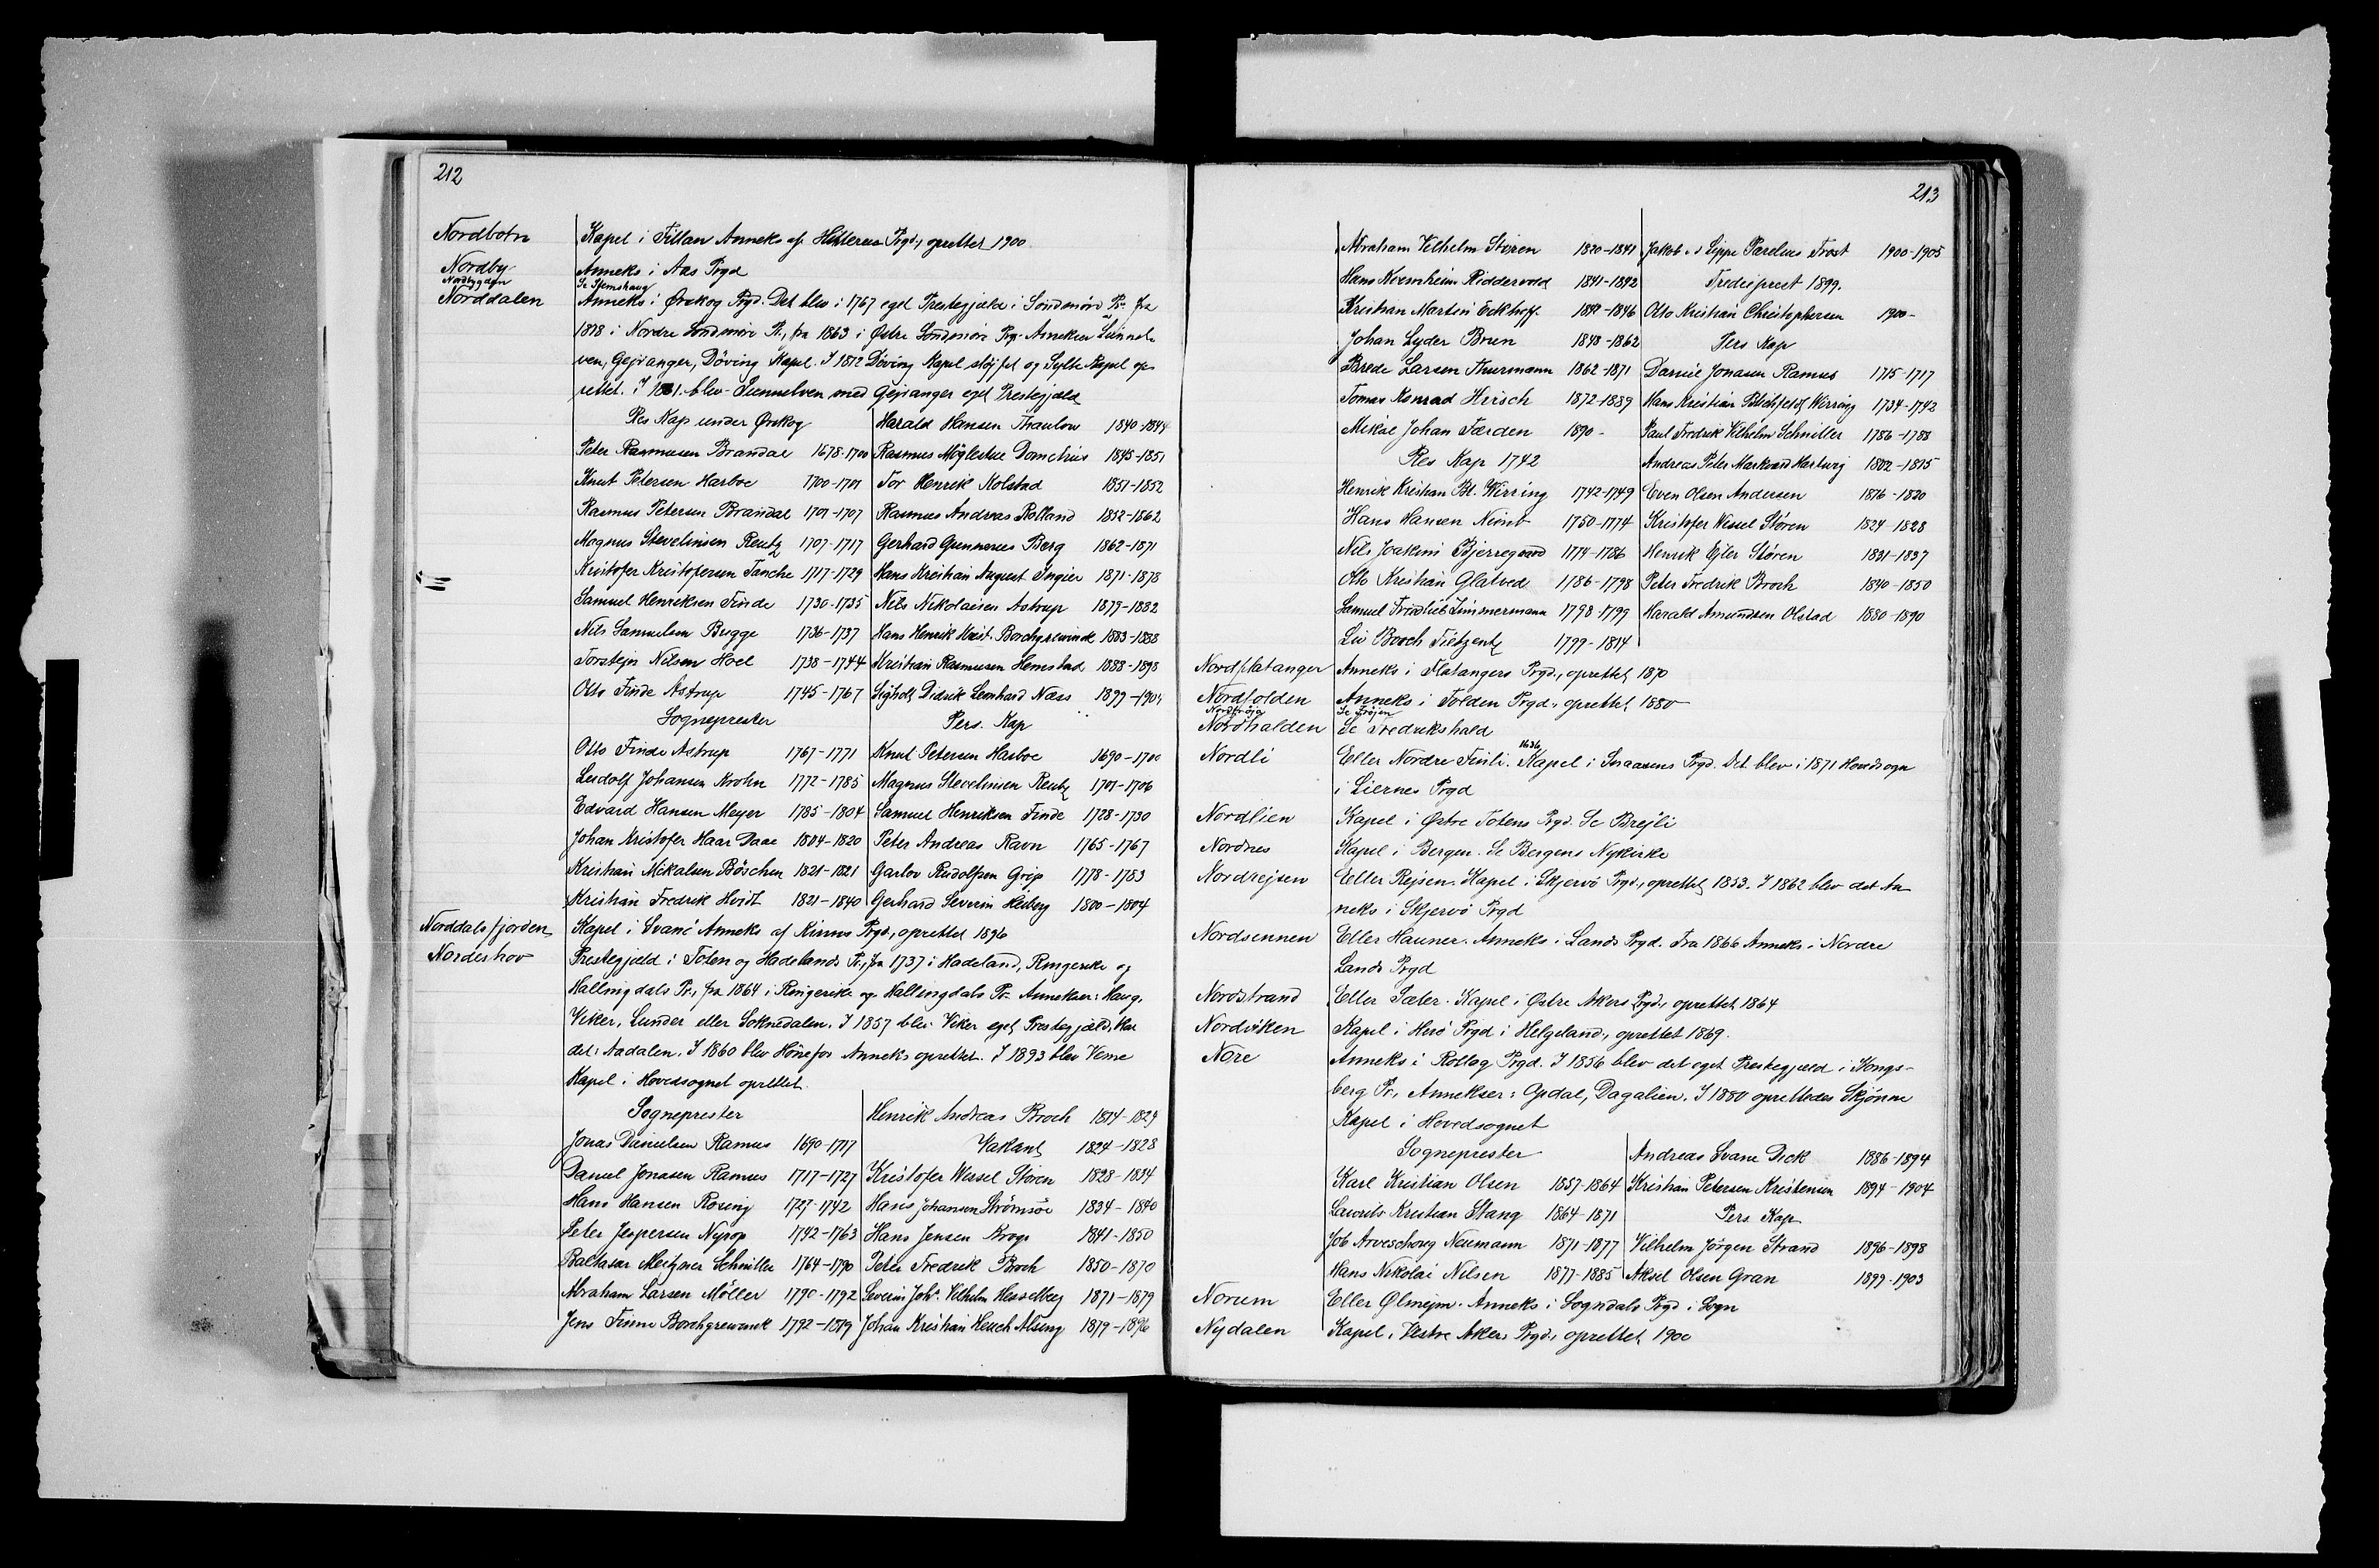 212
Nordbotn Kapel i Fillan Anneks af Hitterens Prgd, oprettet 1900
Nordby Anneks i Aas Prgd
Nordbygden Se Stjernshaug
Norddalen Anneks i Ørskog Prgd. Det blev i 1767 eget Prestegjæld i Sondmøre Pr. fra
1818 i Nordre Sondmøre Pr, fra 1863 i Østre Sondmøre Prg. Annekser Sunnel-
ven, Gejranger, Döving Kapel. I 1872 Döving Kapel slöjfet og Sylte Kapel op-
rettet. I 1861 blev Sunnelven med Gejranger eget Prestegjæld
Res Kap under Ørskog
Peter Rasmusen Brandal 1678-1700
Knut Petersen Harboe 1700-1701
Rasmus Petersen Brandal 1701-1707
Magnus Stevelinsen Reutz 1707-1717
Kristofer Kristofersen Tanche 1717-1729
Samuel Henriksen Finde 1730-1735
Nils Samuelsen Bugge 1736-1737
Torstejn Nilsen Hoel 1738-1744
Otto Finde Astrup 1745-1767
Sogneprester
Otto Finde Astrup 1767-1771
Ludolf Johansen Krohn 1772-1785
Edvard Hansen Meyer 1785-1804
Johan Kristofer Haar Daae 1804-1820
Kristian Mikalsen Böschen 1821-1821
Kristian Fredrik Hvidt 1821-1840
Harald Hansen Thaulow 1840-1844
Rasmus Möglestue Danchius 1845-1851
Tor Henrik Kolstad 1851-1852
Rasmus Andreas Rolland 1852-1862
Gerhard Gunnerus Berg 1862-1871
Hans Kristian August Ingier 1871-1878
Nils Nikolaisen Astrup 1879-1882
Hans Henrik Krist. Borchgrevink 1883-1888
Kristian Rasmusen Hemstad 1888-1898
Sigholt Didrik Leonhard Næss 1899-1904
Pers. Kap
Knut Petersen Harboe 1690-1700
Magnus Stevelinsen Reutz 1701-1706
Samuel Henriksen Finde 1728-1730
Peter Andreas Ravn 1765-1767
Garlov Rudolfsen Grip 1778-1783
Gerhard Severin Heiberg 1800-1804
Norddalsfjorden Kapel i Svanö Anneks af Kinns Prgd, oprettet 1896
Norderhov Prestegjæld i Toten og Hadelands Pr, fra 1737 i Hadeland, Ringerike og
Hallingdals Pr, fra 1864 i Ringerike og Hallingdals Pr. Annekser: Haug,
Viker, Lunder eller Soknedalen. I 1857 blev Viker eget Prestegjæld, kal
det: Aadalen. I 1860 blev Hönefos Anneks oprettet. I 1893 blev Veme
Kapel i Hovedsognet oprettet.
Sogneprester
Jonas Danielsen Ramus 1690-1717
Daniel Jonasen Ramus 1717-1727
Hans Hansen Rosing 1727-1742
Peter Jespersen Nyrop 1742-1763
Baltasar Meitzner Schnitler 1764-1790
Abraham Larsen Möller 1790-1792
Jens Finne Borchgrevink 1792-1819
Henrik Andreas Broch 1814-1824
Vakant 1824-1828
Kristofer Wessel Støren 1828-1834
Hans Johansen Strömsöe 1834-1840
Hans Jensen Krogs 1841-1850
Peter Fredrik Broch 1850-1870
Severin Joh. Vilhelm Hesselberg 1871-1879
Johan Kristian Heuch Alsing 1879-1896
213
Abraham Vilhelm Støren 1820-1841
Hans Kornhein Riddervold 1841-1842
Kristian Martin Eckhoff 1841-1846
Johan Lyder Brun 1848-1862
Brede Larsen Thurmann 1862-1871
Tomas Konrad Hirsch 1872-1889
Mikal Johan Færden 1890-
Res Kap 1742
Henrik Kristian Bl. Wirring 1742-1749
Hans Hansen 1750-1774
Nils Joakim Bjerregaard 1774-1786
Otto Kristian Glatved 1786-1798
Samuel Fridlieb Zimmermann 1798-1799
Liv Broch Tietzentz 1799-1814
Jakob Seippe Parelius Frost 1900-1905
Tredieprest 1899.
Otto Kristian Christophersen 1900-
Pers Kap
Daniel Jonasen Ramus 1715-1717
Hans Kristian Blichfeldt Wirring 1734-1742
Paul Fredrik Vilhelm Schnitler 1786-1788
Andreas Peter Markvard Hartvig 1802-1815
Even Olsen Andersen 1816-1820
Kristofer Wessel Støren 1824-1828
Henrik Ejler Støren 1831-1837
Peter Fredrik Broch 1840-1850
Harald Amundsen Olstad 1880-1890
Nordflatanger Anneks i Flatangers Prgd, oprettet 1870
Nordfolden Anneks i Folden Prgd, oprettet 1880
Nordfröja Se Fröjen
Nordhalden Se Fredrikshald
Nordli Eller Nordre Finli. 1636 Kapel i Snaasens Prgd. Det blev i 1871 Hovedsogn
i Liernes Prgd
Nordlien Kapel i Østre Totens Prgd. Se Brejli
Nordnes Kapel i Bergen. Se Bergens Nykirke
Nordrejsen Eller Rejsen. Kapel i Skjervö Prgd, oprettet 1853. I 1862 blev det An
neks i Skjervö Prgd
Nordsennen Eller Hauner. Anneks i Lands Prgd. Fra 1866 Anneks i Nordre
Lands Prgd
Nordstrand Eller Sæter. Kapel i Østre Akers Prgd, oprettet 1864
Nordviken Kapel i Herö Prgd i Helgeland, oprettet 1869.
Nore Anneks i Rollag Prgd. I 1856 blev det eget Prestegjæld i Kongs-
berg Pr, Annekser: Opdal, Dagalien. I 1880 oprettedes Skjönne
Kapel i Hovedsognet
Sogneprester
Karl Kristian Olsen 1857-1864
Laurits Kristian Stang 1864-1871
Job Arveschoug Neumann 1871-1877
Hans Nikolai Nilsen 1877-1885
Andreas Svane Dick 1886-1894
Kristian Petersen Kristensen 1894-1904
Pers. Kap
Vilhelm Jörgen Strand 1896-1898
Aksel Olsen Gran 1899-1903
Norum Eller Ølmejm. Anneks i Sogndals Prgd i Sogn
Nydalen Kapel i Vestre Akers Prgd, oprettet 1900